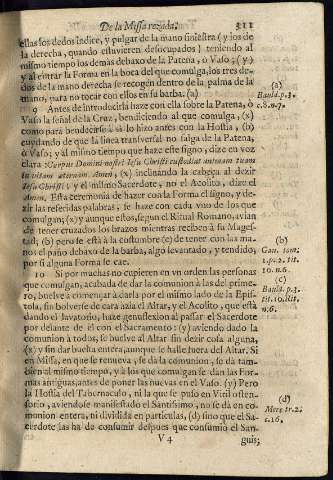 De la Missa rezada. 311
ellas los dedos indice, y pulgar de la mano siniestra (y los de
la derecha, quando estuvieren desocupados) teniendo al
mismo tiempo los demàs debaxo de la Patena, ò Vaso; (y)
y al entrar la Forma en la boca del que comulga, los tres de-
dos de la mano derecha se recogen dentro de la palma de la
mano, para no tocar con ellos en su barba. (a)
9 Antes de introducirla haze con ella sobre la Patena, ò
Vaso la señal de la Cruz, bendiciendo al que comulga, (x)
como para bendecirse à sì lo hizo antes con la Hostia, (b)
cuydando de que la linea transversal no salga de la Patena,
ò Vaso; y al mismo tiempo que haze este signo, dize en voz
clara: Corpus Domini nostri Iesu Christi custodiat animam tuam
in vitam æternam. Amen, (x) inclinando la cabeça al dezir
Iesu Christi; y el mismo Sacerdote, no el Acolito, dize el
Amen. Esta ceremonia de hazer con la Forma el signo, y de-
zir las referidas palabras, se haze con cada vno de los que
comulgan; (x) y aunque estos, segun el Ritual Romano, avian
de tener cruzados los brazos mientras reciben à su Mages-
tad; (b) pero se està à la costumbre (c) de tener con las ma-
nos el paño debaxo de la barba, algo levantado, y tendido,
por si alguna Forma se cae.
10 Si por muchas no cupieren en vn orden las personas
que comulgan, acabada de dar la comunion à las del prime-
ro, buelve à comengar à darla por el mismo lado de la Epis-
tola, sin bolverse de cara àzia el Altar, y el Acolito, que està
dando el lavatorio, haze genuflexion al passar el Sacerdote
por delante de èl con el Sacramento: (x) aviendo dado la
comunion à todos, se buelve al Altar sin dezir cosa alguna,
(x) y sin dar buelta entera, aunque se halle fuera del Altar. Si
en Missa, en que se renueva, se dà la comunion, se dà tam-
bien al mismo tiempo, y à los que comulgan se dàn las For-
mas antiguas, antes de poner las nuevas en el Vaso. (y) Pero
la Hostia del Tabernaculo, ni la que se puso en Viril osten-
sorio, aviendose manifestado el Santissimo, no se dà en co-
munion entera, ni dividida en particulas, (d) sino que el Sa-
cerdote las ha de consumir despues que consumiò el San-
V 4 guis;
(a)
Bauld. p. 3.
c. 8. n. 7.
(b)
1. p. 2. tit.
10. n. 6.
(c)
Bauld. p. 3.
tit. 10. Rit.
n. 6.
(d)
Merc tr. 2.
c. 16.